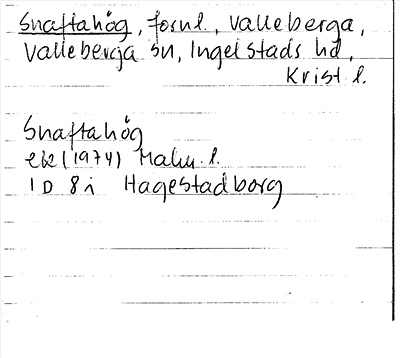 Snaftahög, fornl., Valleberga,
Valleberga sn, Ingelstads hd,
Krist. l.
Snaftahög
ek (1974) Malm. l.
1D 8i Hagestadborg